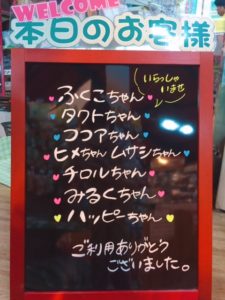 WELCOME
本日のお客様
いらっしゃ
いませ
ふくこちゃん
タクトちゃん
ココアちゃん
ヒメちゃん ムサシちゃん
チロルちゃん
みるくちゃん
ハッピーちゃん
ご利用ありがとう
ございました。